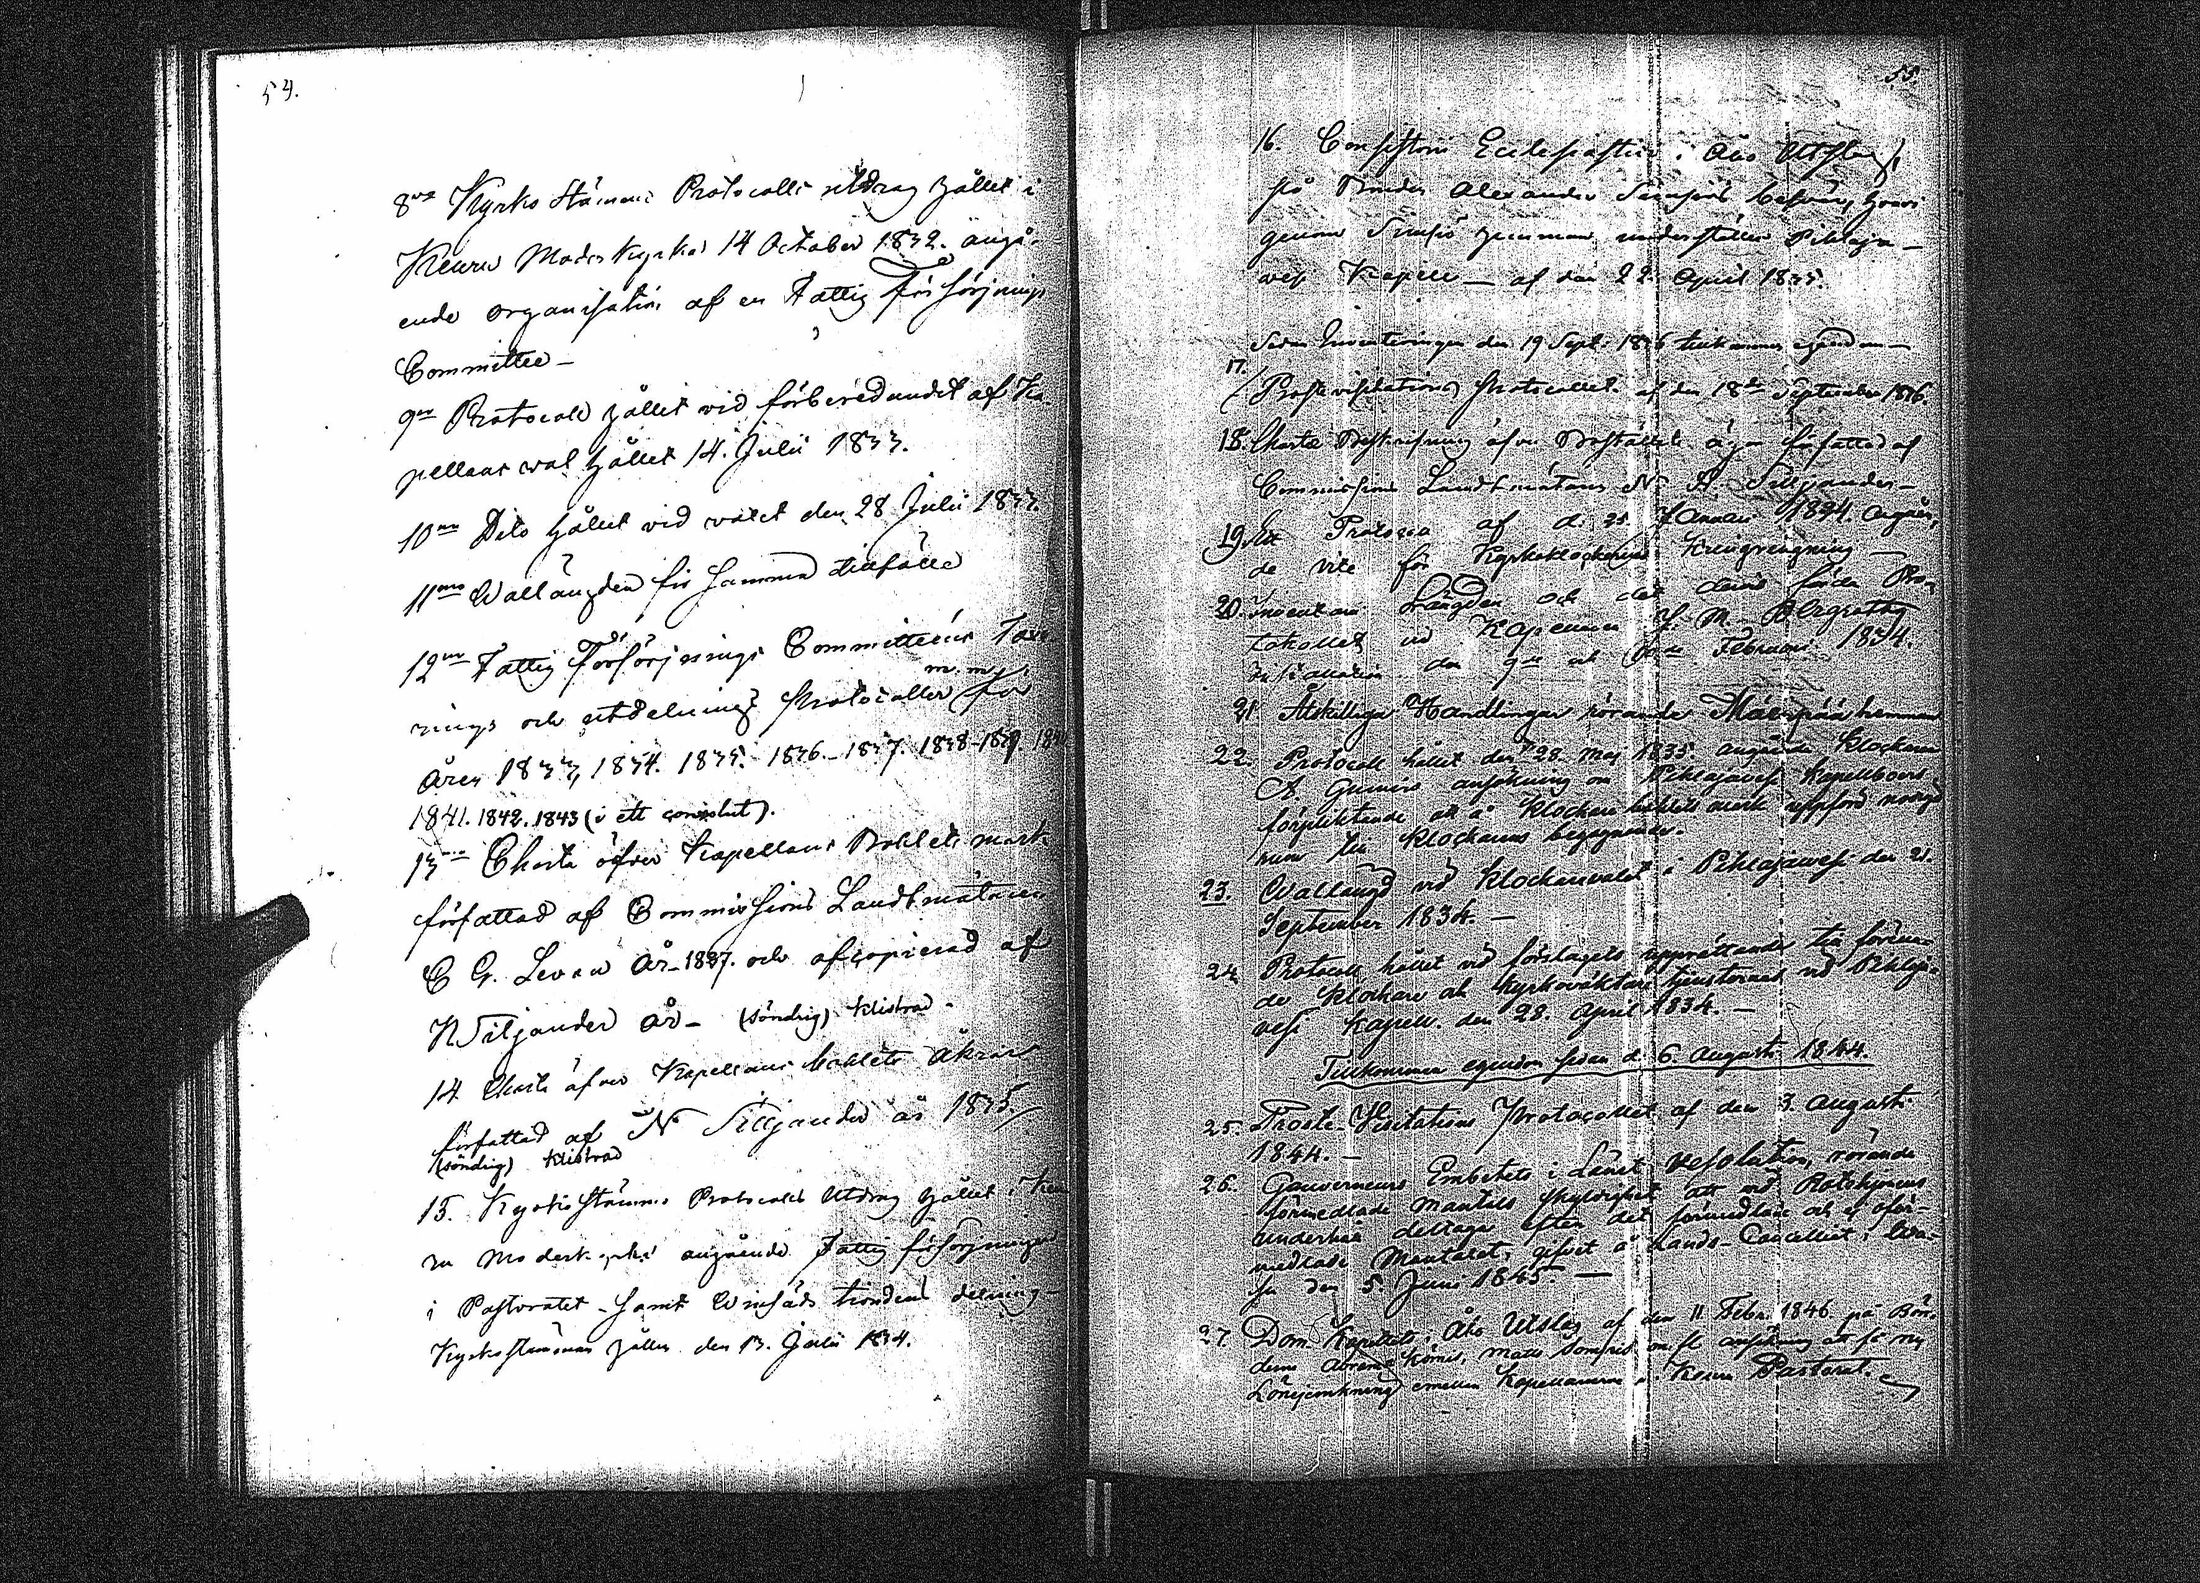 54.
8va Kyrko Stämme Protocolls utdrag hållet i
Keuru Moderkyrka 14 October 1832. angå-
ende organisation af en Fattig Försörjnings
Committee –
9na Protocoll hållet vid förberedandet af Ka
pellans wal hållet 14. Julii 1833.
10ma Dito hållet vid valet den 28 Julii 1833.
11ma Wallängden för samma tillfälle
12ma Fattig Försörjnings Committeens Taxe-
rings och utdelnings Protocoller m.m. för
Åren 1833, 1834. 1835. 1836. 1837. 1838 – 1839. 1840
1841. 1842. 1843 (i ett convolut).
13na Charta öfver Kapellans Bohlets mark
författad af Commissions Landtmätaren
C G. Levan År 1837. och afcopierad af
N Siljander år – (söndrig) klistrad –
14. Charta öfver Kapellans bohlets åkrar
författad af N Siljander år 1835.
(söndrig) klistrad
15. Kyrko Stämmo Protocolls Utdrag hållet i Keu
ru Moderkyrka angående Fattig försörjningen
i Pastoratet – samt tiondens delning –
Kyrkostämman hållen den 13. Julii 1834.
55.
16. Consistorii Ecclesiastici i Åbo Utslag
på Bonden Alexander besvär, hvari
genom hemman underställes Pihlaja –
vesi Kapell – af den 22 April 1835.
Sedan Inventeringen den 19 Sept. 1836 tillkommer –
17. Prostvisitations Protocollet af den 18de September 1836.
18. Charta Beskrifning öfver Boställets ägor författad af
Commissions Landtmätare N A Siljander –
19. Ett Protocoll af d. 25 Januari 1834. angåen-
de vite för Kyrkoklockornas –
20. Inventarii Längden och det dervid förda Pro-
tokollet vid Kapellanen J. M. Blegrothy
Installation den 9de och 10de Februari 1834.
21 Åtskilliga Handlingar rörande Mäenpää hemman
22. Protocoll hållet den 28. Maj 1835. angående Klockaren
A. ansökning om Pihlajavesi Kapellboers
förpliktande att å Klockare bohlets mark uppföra
rum till Klockarens begagnande.
23. Wallängd vid Klockarevalet i Pihlajavesi den 21.
September 1834. –
24. Protocoll hållet vid förslagets upprättande till förena-
de Klockare och Kyrkoväktare tjensterna vid Pihlaja-
vesi Kapell. den 28. April 1834. –
Tillkommen egendom sedan d. 6. Augusti 1844.
25. Prosts-Visitations Protocollet af den 3. Augusti
1844. –
26. Gouverneurs Embetets i Länet resolution, rörande
förmedlade Mantals skyldighet att vid
underhåll deltaga efter det förmedlade och ej oför-
medlade Mantalet, gifvet å Lands-Cancelliet i Wa-
sa den 5. Juni 1845. –
27. Dom-Kapitlets i Åbo Utslag af den 11 Febr. 1846 på Bön-
derne ansökning att få ny
Lönejemkning emellan Kapellanerne i Keuru Pastorat.